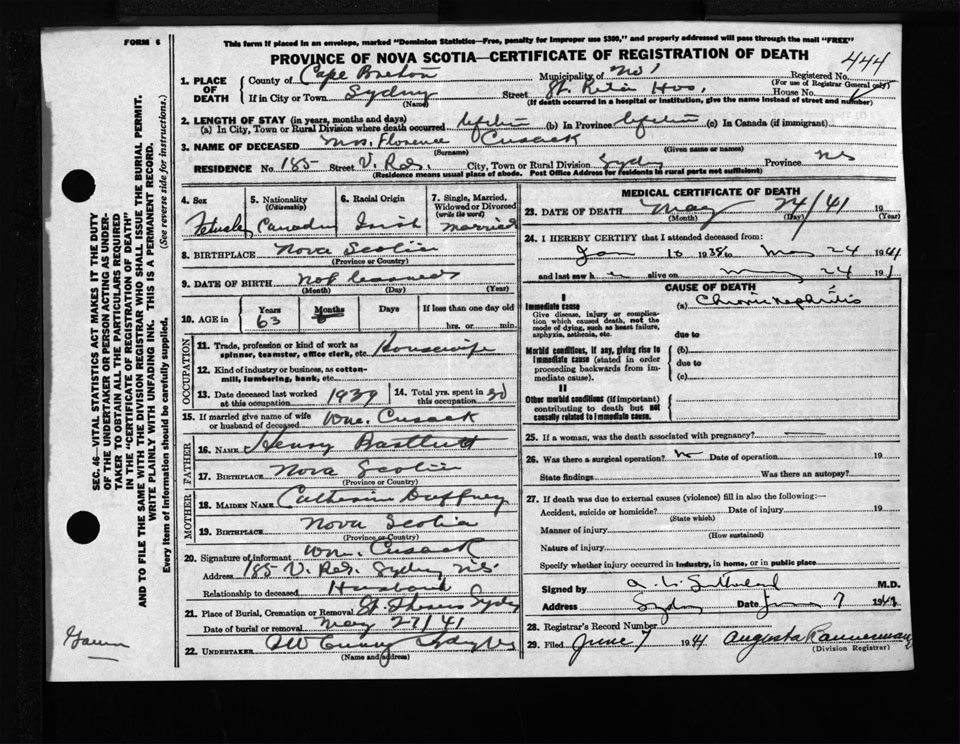 FORM 6
This form if placed in an envelope, marked "Dominion Statistics—Free, penalty for improper use $300," and properly addressed will pass through the mail "FREE"
PROVINCE OF NOVA SCOTIA—CERTIFICATE OF REGISTRATION OF DEATH
444
1. PLACE OF DEATH
County of Cape Breton Municipality of No 1 Registered No.
(For use of Registrar General only)
If in City or Town Sydney Street St. Rita Hos. House No.
(Name) (If death occurred in a hospital or institution, give the name instead of street and number)
2. LENGTH OF STAY (in years, months and days)
(a) In City, Town or Rural Division where death occurred lifetime (b) In Province lifetime (c) In Canada (if immigrant)
3. NAME OF DECEASED Mrs. Florence Cusack
(Surname) (Given name or names)
RESIDENCE No. 185 Street V. Rd. City, Town or Rural Division Sydney Province NS
(Residence means usual place of abode. Post Office Address for residents in rural parts not sufficient)
4. Sex Female
5. Nationality (Citizenship) Canadian
6. Racial Origin Irish
7. Single, Married, Widowed or Divorced (write the word) Married
8. BIRTHPLACE Nova Scotia
(Province or Country)
9. DATE OF BIRTH Not
(Month) (Day) (Year)
10. AGE in Years Months Days If less than one day old
63 hrs. or min.
OCCUPATION
11. Trade, profession or kind of work as spinner, teamster, office clerk, etc. Housewife
12. Kind of industry or business, as cotton-mill, lumbering, bank, etc.
13. Date deceased last worked at this occupation 1939
14. Total yrs. spent in this occupation 30
15. If married give name of wife or husband of deceased Wm. Cusack
FATHER
16. NAME Henry Bartlett
17. BIRTHPLACE Nova Scotia
(Province or Country)
MOTHER
18. MAIDEN NAME Catherine Duffney
19. BIRTHPLACE Nova Scotia
(Province or Country)
20. Signature of informant Wm. Cusack
Address 185 V. Rd. Sydney NS
Relationship to deceased Husband
21. Place of Burial, Cremation or Removal St. Sydney
Date of burial or removal May 27/41
22. UNDERTAKER Sydney NS
(Name and address)
MEDICAL CERTIFICATE OF DEATH
23. DATE OF DEATH May 24/41 19
(Month) (Day) (Year)
24. I HEREBY CERTIFY that I attended deceased from:
Jan 10 1938 to May 24 1941
and last saw h alive on May 24 191
CAUSE OF DEATH
I
Immediate cause
Give disease, injury or complication which caused death, not the mode of dying, such as heart failure, asphyxia, asthenia, etc.
(a) Chronic Nephritis
due to
Morbid conditions, if any, giving rise to immediate cause (stated in order proceeding backwards from immediate cause).
(b)
due to
(c)
II
Other morbid conditions (if important) contributing to death but not causally related to immediate cause.
25. If a woman, was the death associated with pregnancy?
26. Was there a surgical operation? no Date of operation 19
State findings Was there an autopsy?
27. If death was due to external causes (violence) fill in also the following:—
Accident, suicide or homicide? Date of injury 19
(State which)
Manner of injury
(How sustained)
Nature of injury
Specify whether injury occurred in industry, in home, or in public place
Signed by Sutherland M.D.
Address Sydney Date June 7 1941
28. Registrar's Record Number
29. Filed June 7 1941 Augusta Bannerman
(Division Registrar)
SEC. 46—VITAL STATISTICS ACT MAKES IT THE DUTY
OF THE UNDERTAKER OR PERSON ACTING AS UNDER-
TAKER TO OBTAIN ALL THE PARTICULARS REQUIRED
IN THE "CERTIFICATE OF REGISTRATION OF DEATH"
AND TO FILE THE SAME WITH THE DIVISION REGISTRAR WHO SHALL ISSUE THE BURIAL PERMIT.
WRITE PLAINLY WITH UNFADING INK. THIS IS A PERMANENT RECORD.
Every item of information should be carefully supplied. (See reverse side for instructions.)